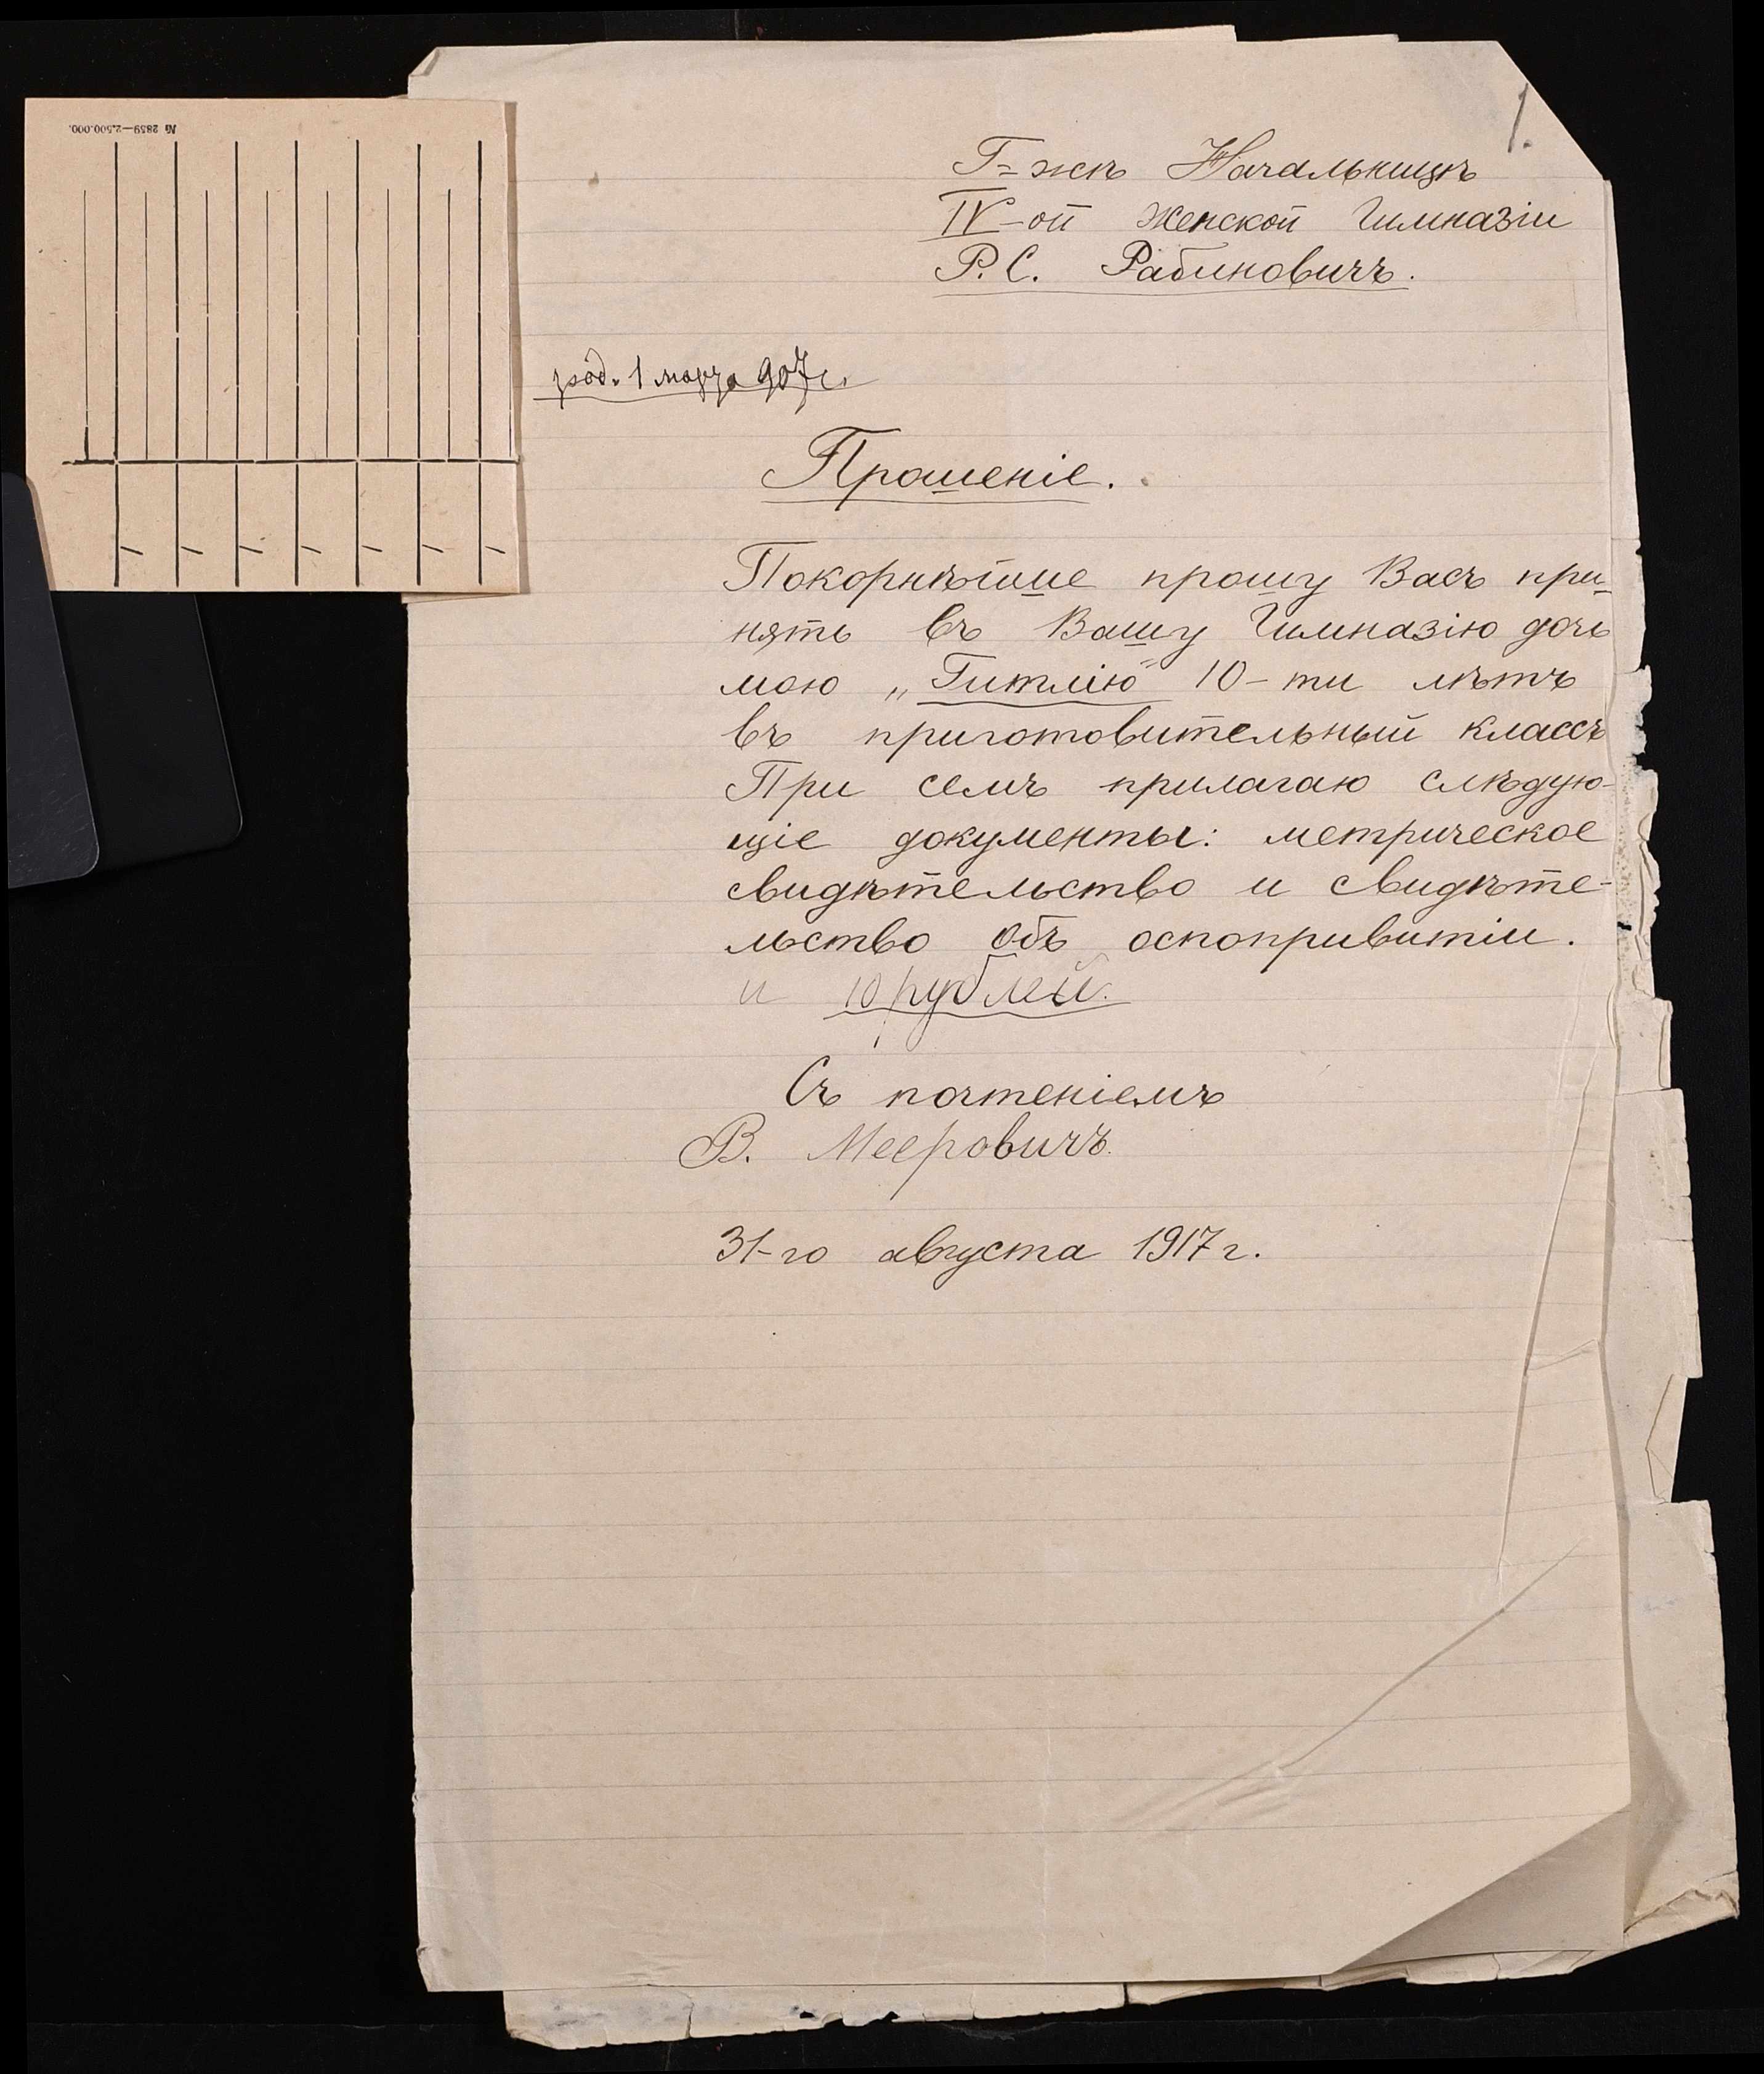 № 2859—2.500.000.
1.
Г-жѣ Начальницѣ
IV-ой Женской Гимназіи
Р. С. Рабиновичъ.
род. 1 марта 907 г.
Прошеніе.
Покорнѣйше прошу Васъ при-
нять въ Вашу Гимназію дочь
мою „Гитлію" 10-ти лѣтъ
въ приготовительный классъ
При семъ прилагаю слѣдую-
щіе документы: метрическое
свидѣтельство и свидѣте-
льство объ оспопривитіи.
и 10 рублей.
Съ почтеніемъ
В. Мееровичъ.
31-го августа 1917 г.